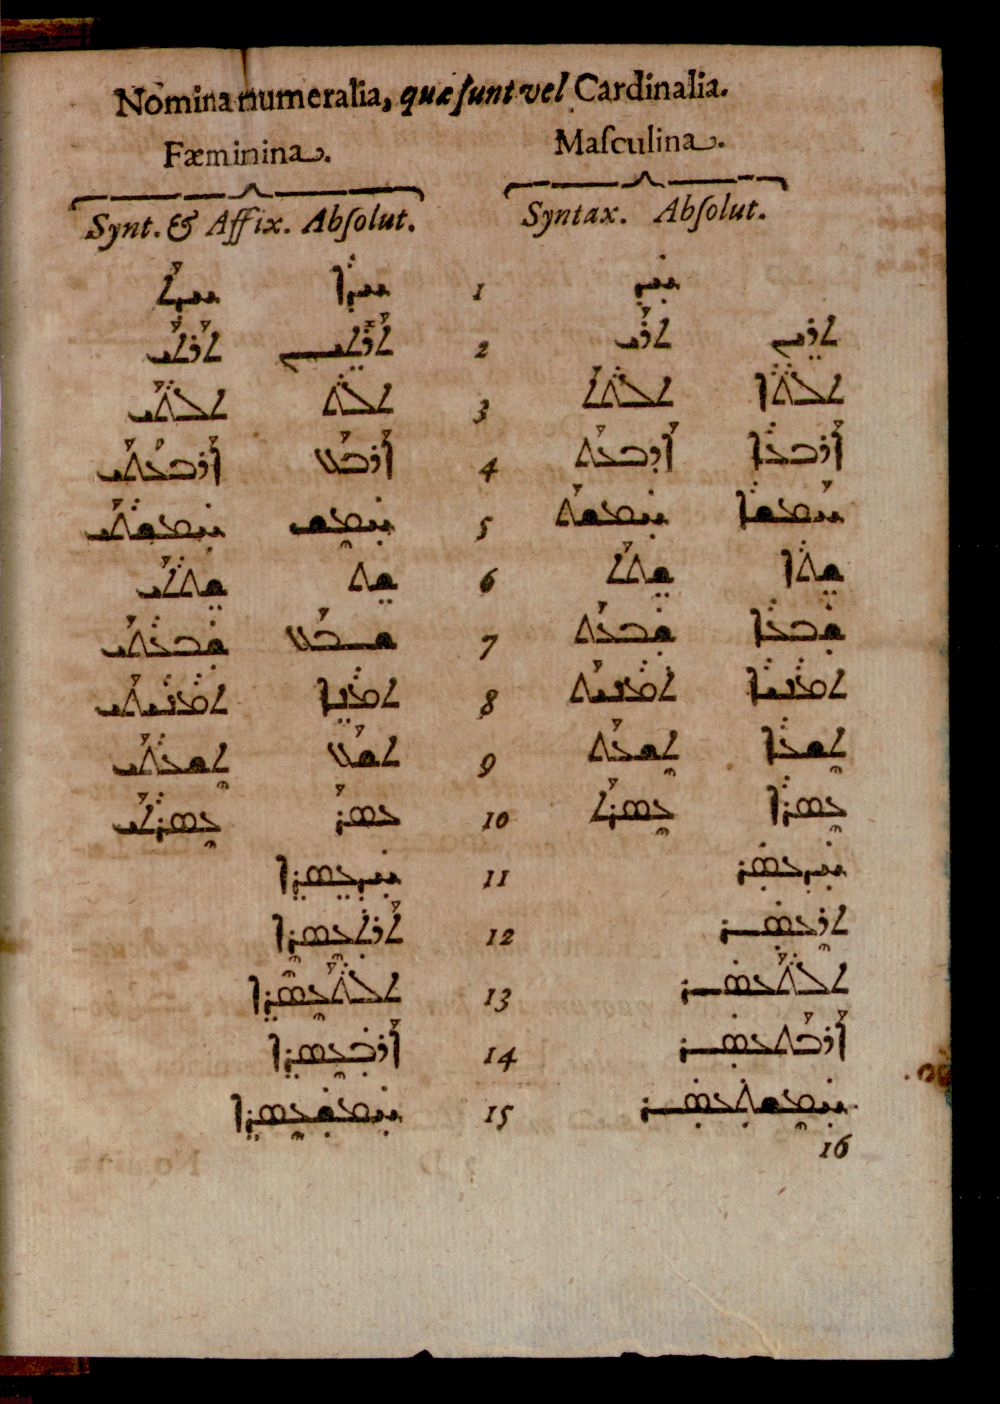 Nomina numeralia, quæ sunt vel Cardinalia.
Fæminina. Maſculina.
Synt. & Affix. Abſolut. Syntax. Abſolut.
ܚܕܬ ܚܕܐ 1 ܚܕ
ܬܪܬܝ ܬܪܬܝܢ 2 ܬܪܝ ܬܪܝܢ
ܬܠܬܝ ܬܠܬ 3 ܬܠܬܬ ܬܠܬܐ
ܐܪܒܥܬܝ ܐܪܒܥ 4 ܐܪܒܥܬ ܐܪܒܥܐ
ܚܡܫܬܝ ܚܡܫ 5 ܚܡܫܬ ܚܡܫܐ
ܫܬܬܝ ܫܬ 6 ܫܬܬ ܫܬܐ
ܫܒܥܬܝ ܫܒܥ 7 ܫܒܥܬ ܫܒܥܐ
ܬܡܢܝܬܝ ܬܡܢܐ 8 ܬܡܢܝܬ ܬܡܢܝܐ
ܬܫܥܬܝ ܬܫܥ 9 ܬܫܥܬ ܬܫܥܐ
ܥܣܪܬܝ ܥܣܪ 10 ܥܣܪܬ ܥܣܪܐ
ܚܕܥܣܪܐ 11 ܚܕܥܣܪ
ܬܪܬܥܣܪܐ 12 ܬܪܥܣܪ
ܬܠܬܥܣܪܐ 13 ܬܠܬܥܣܪ
ܐܪܒܥܣܪܐ 14 ܐܪܒܬܥܣܪ
ܚܡܫܥܣܪܐ 15 ܚܡܫܬܥܣܪ
16